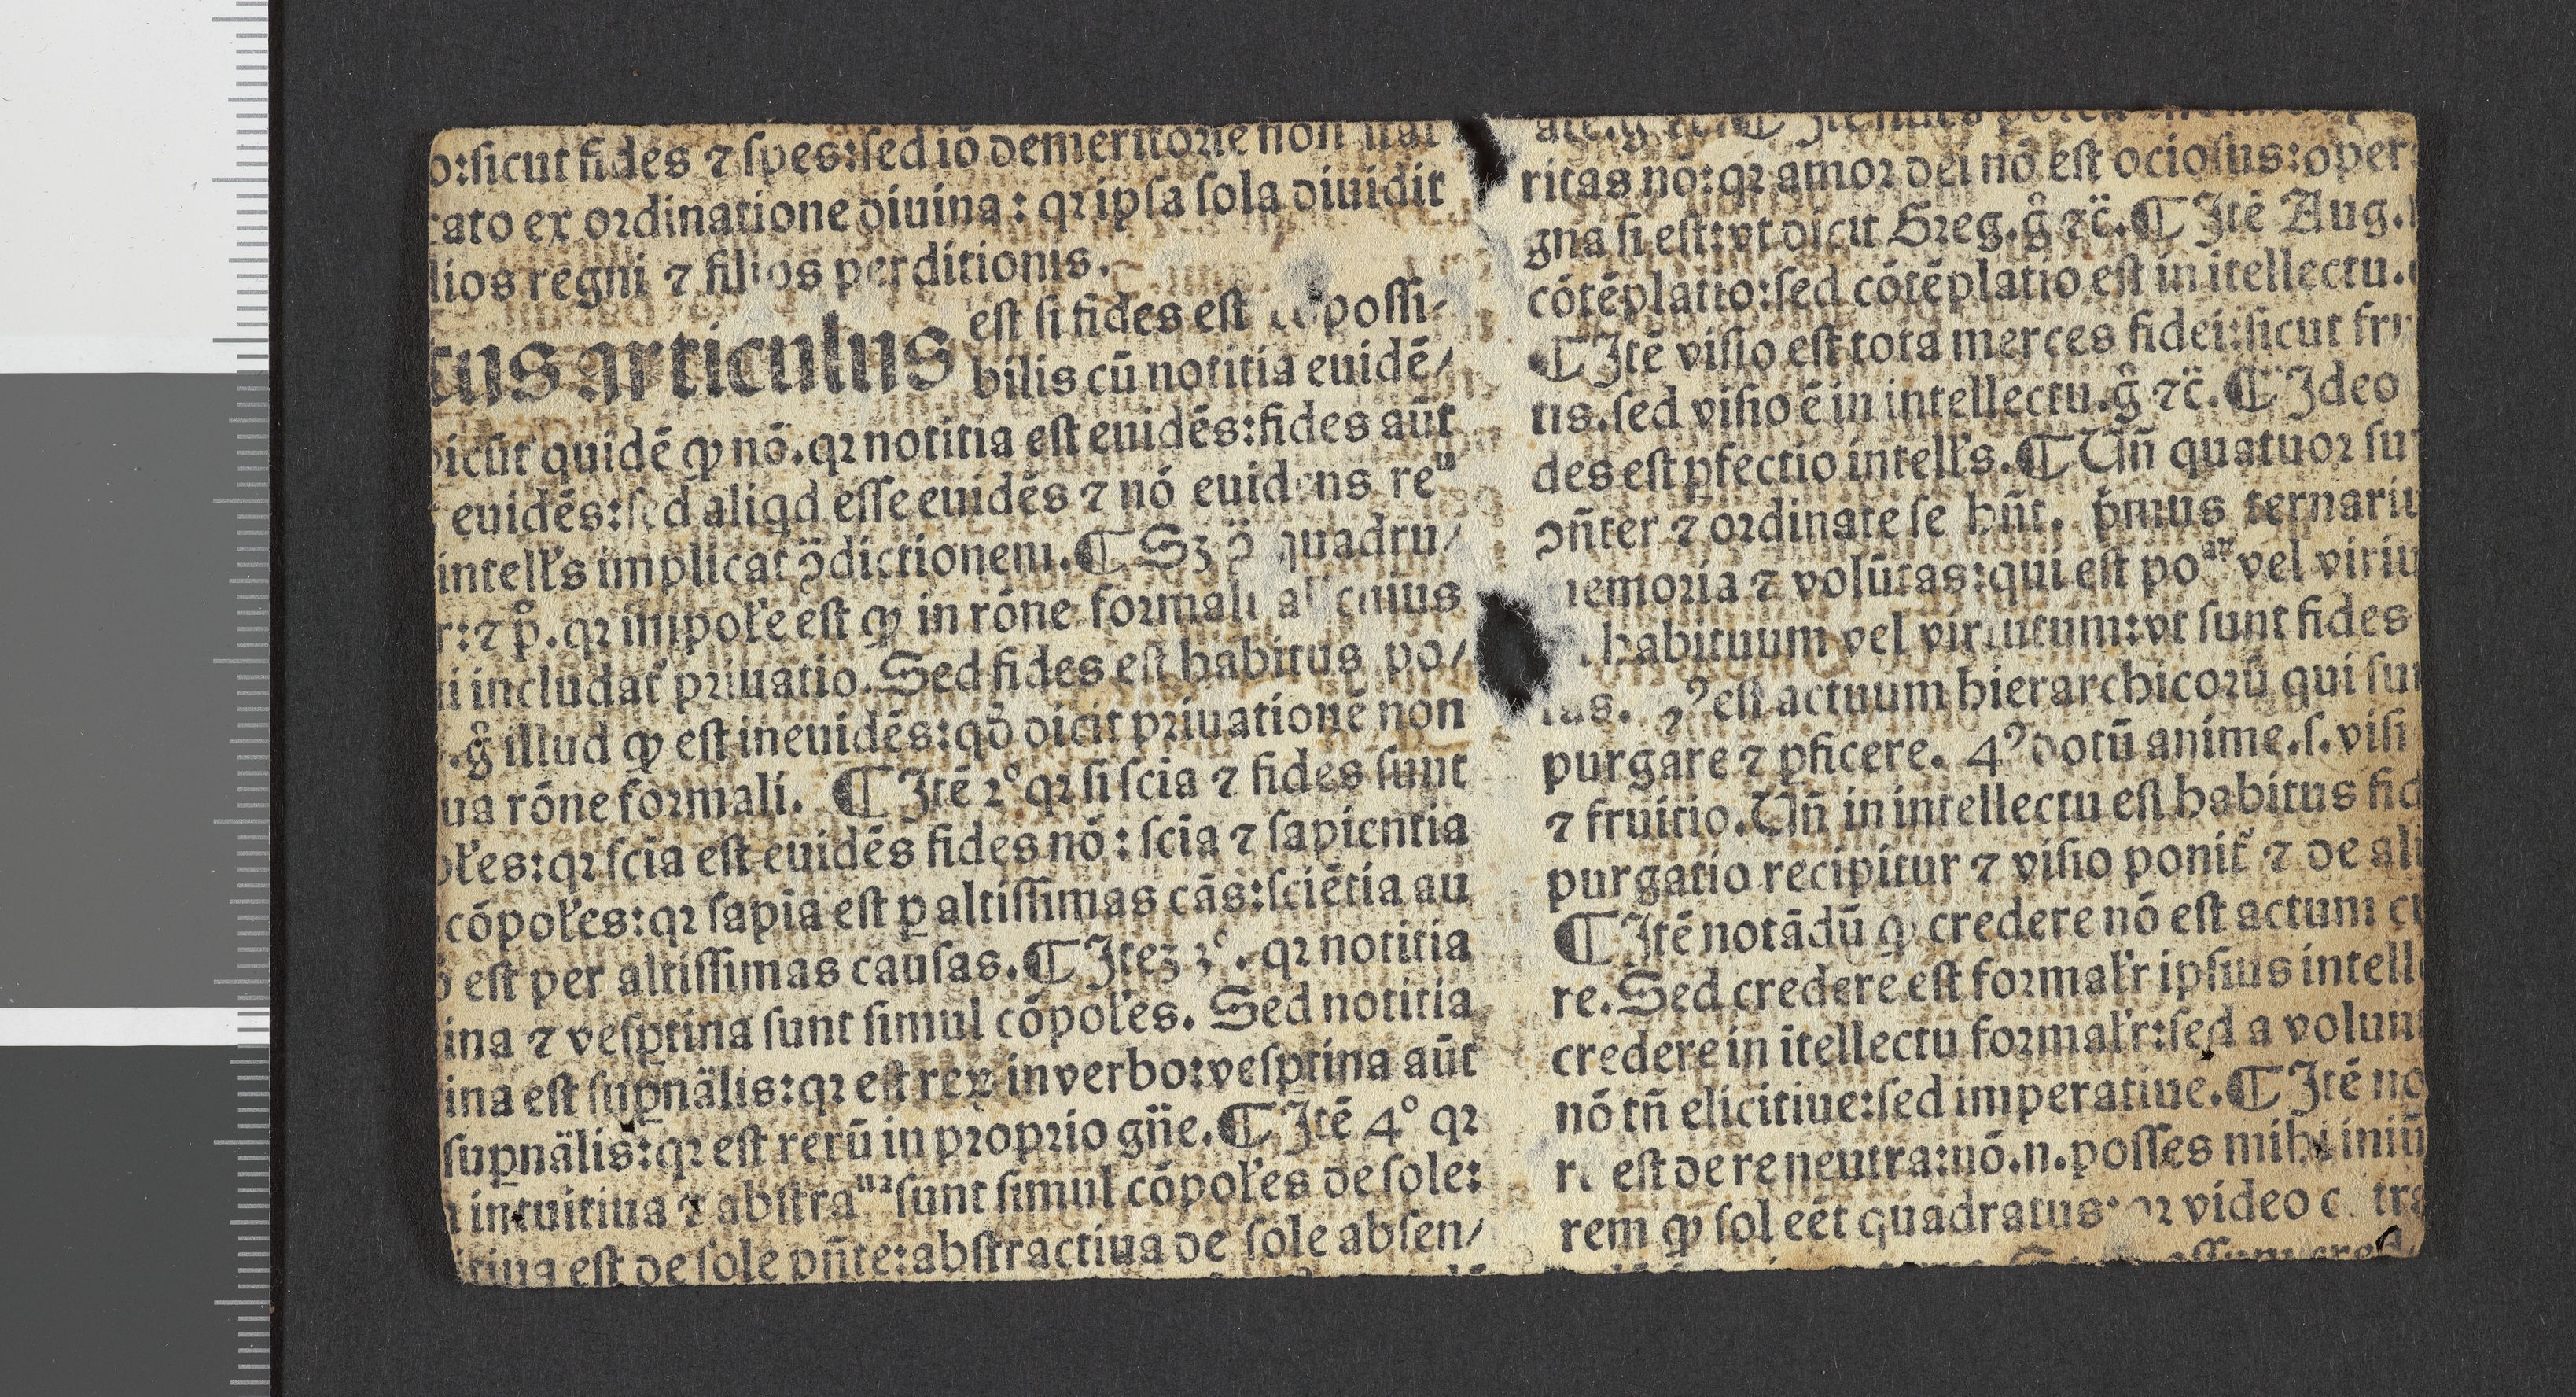 o:ſicut fides ⁊ ſpes:ſed iō demeritorie non
ato ex ordinatione diuina: qꝛ ipſa ſola diuidit
lios regni ⁊ filios perditionis.
tus articulus est ſi fides est poſſi-
bilis cū notitia euidē/
icūt quidē ꝙ nō. qꝛ notitia est euidēs: fides aūt
euidēs: ſed aliqd eſſe euidēs ⁊ nō euidens reᵘ
intelłs implicat ꝯdictionem. ¶ Sꝫ ꝯ quadru/
r: ⁊ p̊. qꝛ impołe est ꝙ in rōne formali alicuius
i includat᷑ priuatio. Sed fides est habitus po/
.g̊ illud ꝙ est ineuidēs: qđ dicit priuationē non
ua rōne formali. ¶ Itē 2° qꝛ ſi ſcia ⁊ fides ſunt
ołes: qꝛ ſcia est euidēs fides nō: ſcia ⁊ ſapientia
cōpołes: qꝛ ſapia est ꝑ altiſſimas cās: ſciētia au
est per altiſſimas cauſas. ¶ Iteꝫ 3°. qꝛ notitia
ina ⁊ veſꝑtina ſunt ſimul cōpołes. Sed notitia
ina est ſuꝑnālis: qꝛ est reꝝ in verbo: veſꝑtina aūt
ſuꝑnālis: qꝛ est rerū in proprio gn̄e. ¶ Itē 4° qꝛ
intuitiua ⁊ abſtraᵘᵃ ſunt ſimul cōpołes de ſole:
tiua est de ſole pn̄te: abſtractiua de ſole abſen/
ritas nō: qꝛ amor dei nō est ocioſus: oper
gna ſi est: vt dicit Greg. g̊ ⁊c̄. ¶ Itē Aug.
cōtēplatio: ſed cōtēplatio est in itellectu.
¶ Itē viſio est tota merces fidei: ſicut fru
tis. ſed viſio ē in intellectu. g̊ ⁊c̄. ¶ Ideo
des est ꝑfectio intelłs. ¶ Un̄ quatuor ſu
ꝯn̄ter ⁊ ordinate ſe hn̄t. p̓mus ternariu
memoria ⁊ volūtas: qui est poᵃꝝ vel viriu
habituum vel virtutum: vt ſunt fides
tas. 3ꝰ est actuum hierarchicorū qui ſun
purgare ⁊ ꝑficere. 4ꝰ dotū anime. ſ. viſi
⁊ fruitio. Un̄ in intellectu est habitus fid
purgatio recipitur ⁊ viſio ponit᷑ ⁊ de ali
¶ Itē notādū ꝙ credere nō est actum
re. Sed credere est formałr ipſius intelle
credere in itellectu formałr: ſed a volun
nō tn̄ elicitiue: ſed imperatiue. ¶ Itē no
est de re neutra: nō.n. poſſes mihi
rem ꝙ ſol eēt quadratus: qꝛ video